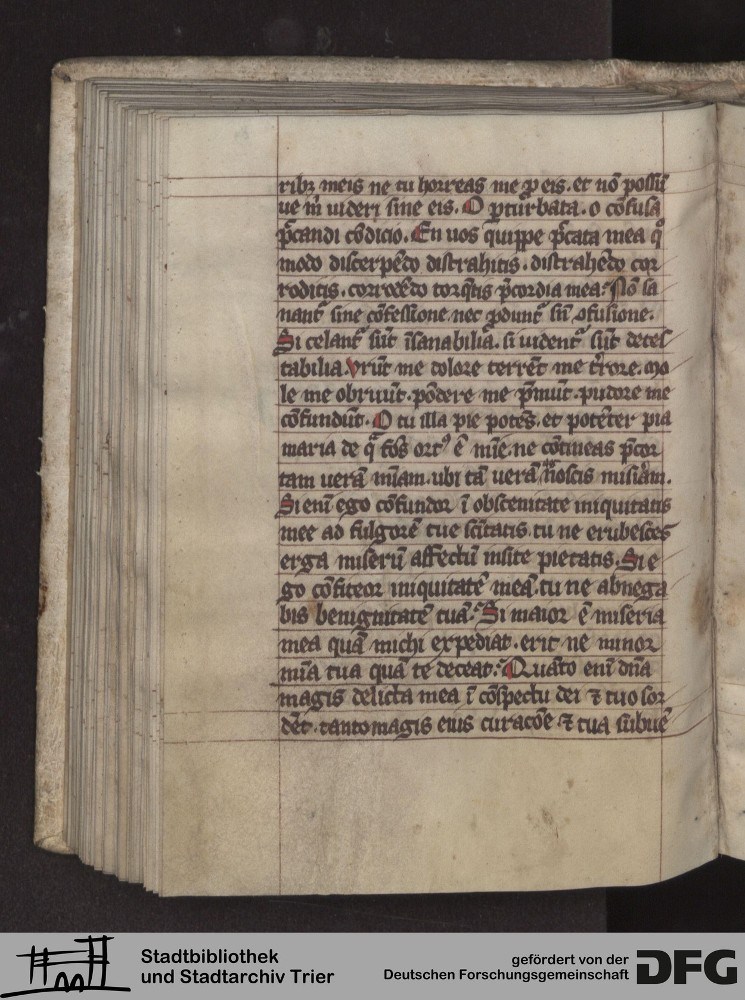 ribꝫ meis ne tu horreas me ꝓ eis. et nō possū
ue m̄ uideri sine eis. O ꝑturbata. o cōfusa
p̄candi cōdicio. En uos quippe p̄cata mea qͦ
modo discerpēdo distrahitis. distrahēdo cor
roditis. corrodēdo torq̄tis p̄cordia mea. Nō sa
nant᷑ sine cōfessione nec ꝓdunt᷑ sñ ꝯfusione.
Si celant᷑ sūt īsanabilia. si uident᷑ sūt detes
tabilia. Vrūt me dolore terrēt me t̄rore. mo
le me obruūt. pōdere me p̄mūt. pudore me
cōfundūt. O tu illa pie potēs. et potēter pia
maria de q̄ fōs ortꝰ ē mīe. ne cōtineas p̄cor
tam uerā mīam. ubi tā uerā noscis misiam.
Si enī ego cōfundor ī obscenitate iniquitatis
mee ad fulgorē tue scītatis. tu ne erubesces
erga miserū affectū insite pietatis. Si e
go cōfiteor iniquitatē meā. tu ne abnega
bis benignitatē tuā. Si maior ē miseria
mea quā michi expediat. erit ne minor
mīa tua quā te deceat. Quāto enī dn̄a
magis delicta mea ī cōspectu dei ⁊ tuo sor
dēt. tanto magis eius curacōe ⁊ tua subuē
Stadtbibliothek
und Stadtarchiv Trier
gefördert von der
Deutschen Forschungsgemeinschaft
DFG